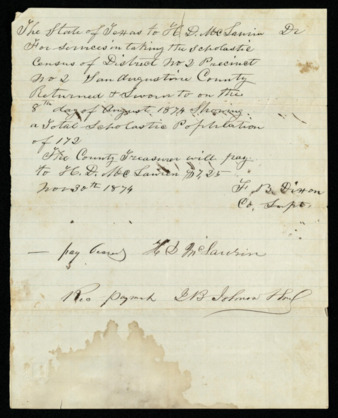 The State of Texas to H. D. McLaurin Dr
For services in taking the Scholastic
Census of District No 2 Precinct
No 2 San Augustine County
Returned & Sworn to on the
8th day of August, 1874 Showing
a Total Scholastic Population
of 172
The County Treasurer will pay
to H. D. McLaurin $17,25
Nov 30th 1874
F. B. Dixon
Co. Supt.
pay
H D McLaurin
Rec payment J B Johnson